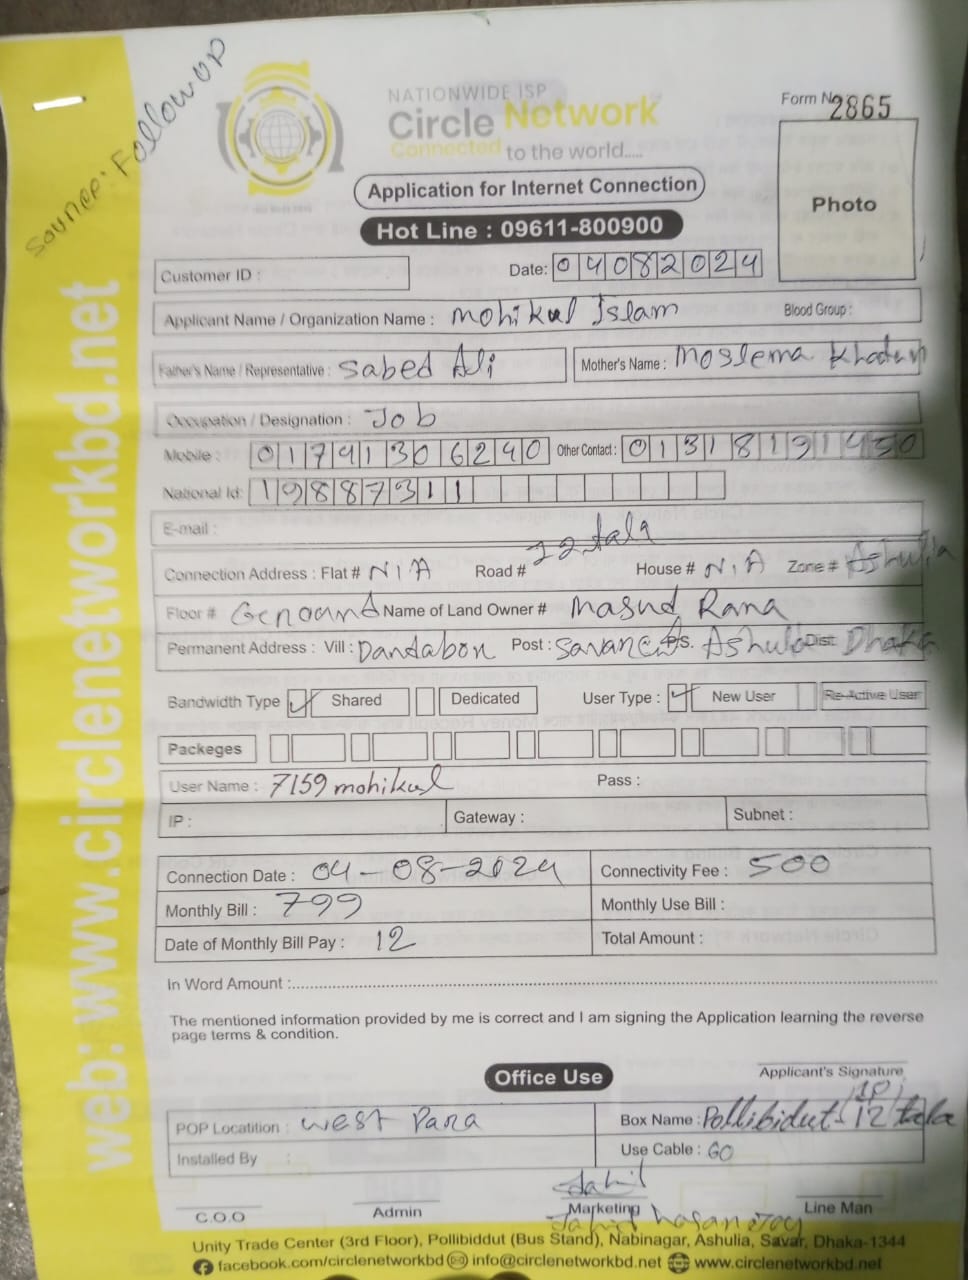 Sounce: Follow UP
NATIONWIDE ISP
Circle Network
Connected to the world.....
Form No 2865
Photo
Application for Internet Connection
Hot Line : 09611-800900
Customer ID :
Date: 04082024
Applicant Name / Organization Name : Mohikul Islam Blood Group :
Father's Name / Representative : Sabed Ali Mother's Name : Moslema Khatun
Occupation / Designation : Job
Mobile : 01741306240 Other Contact : 01318191450
National Id: 19887311
E-mail :
Connection Address : Flat # N/A Road # 12 tala House # N/A Zone # Ashulia
Floor # Genound Name of Land Owner # Masud Rana
Permanent Address : Vill : Dandabon Post : Savar P.S. Ashulia Dist: Dhaka
Bandwidth Type Shared Dedicated User Type : New User Re-Active User
Packeges
User Name : 7159mohikul Pass :
IP : Gateway : Subnet :
Connection Date : 04-08-2024 Connectivity Fee : 500
Monthly Bill : 799 Monthly Use Bill :
Date of Monthly Bill Pay : 12 Total Amount :
In Word Amount :
The mentioned information provided by me is correct and I am signing the Application learning the reverse
page terms & condition.
Applicant's Signature
Office Use
POP Locatition : West Para Box Name : Pollibidut 12 tala
Installed By : Use Cable : 60
C.O.O Admin Marketing Line Man
Unity Trade Center (3rd Floor), Pollibiddut (Bus Stand), Nabinagar, Ashulia, Savar, Dhaka-1344
facebook.com/circlenetworkbd info@circlenetworkbd.net www.circlenetworkbd.net
web: www.circlenetworkbd.net